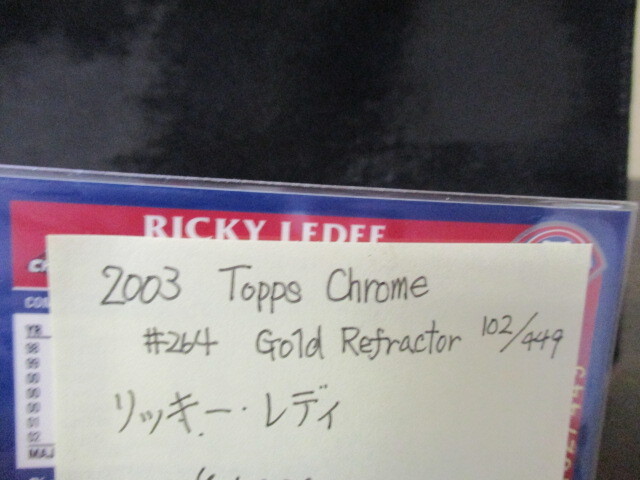 RICKY LEDEE
2003 Topps Chrome
#264 Gold Refractor 102/449
リッキー・レディ
YR
98
99
00
00
00
01
02
MAJ